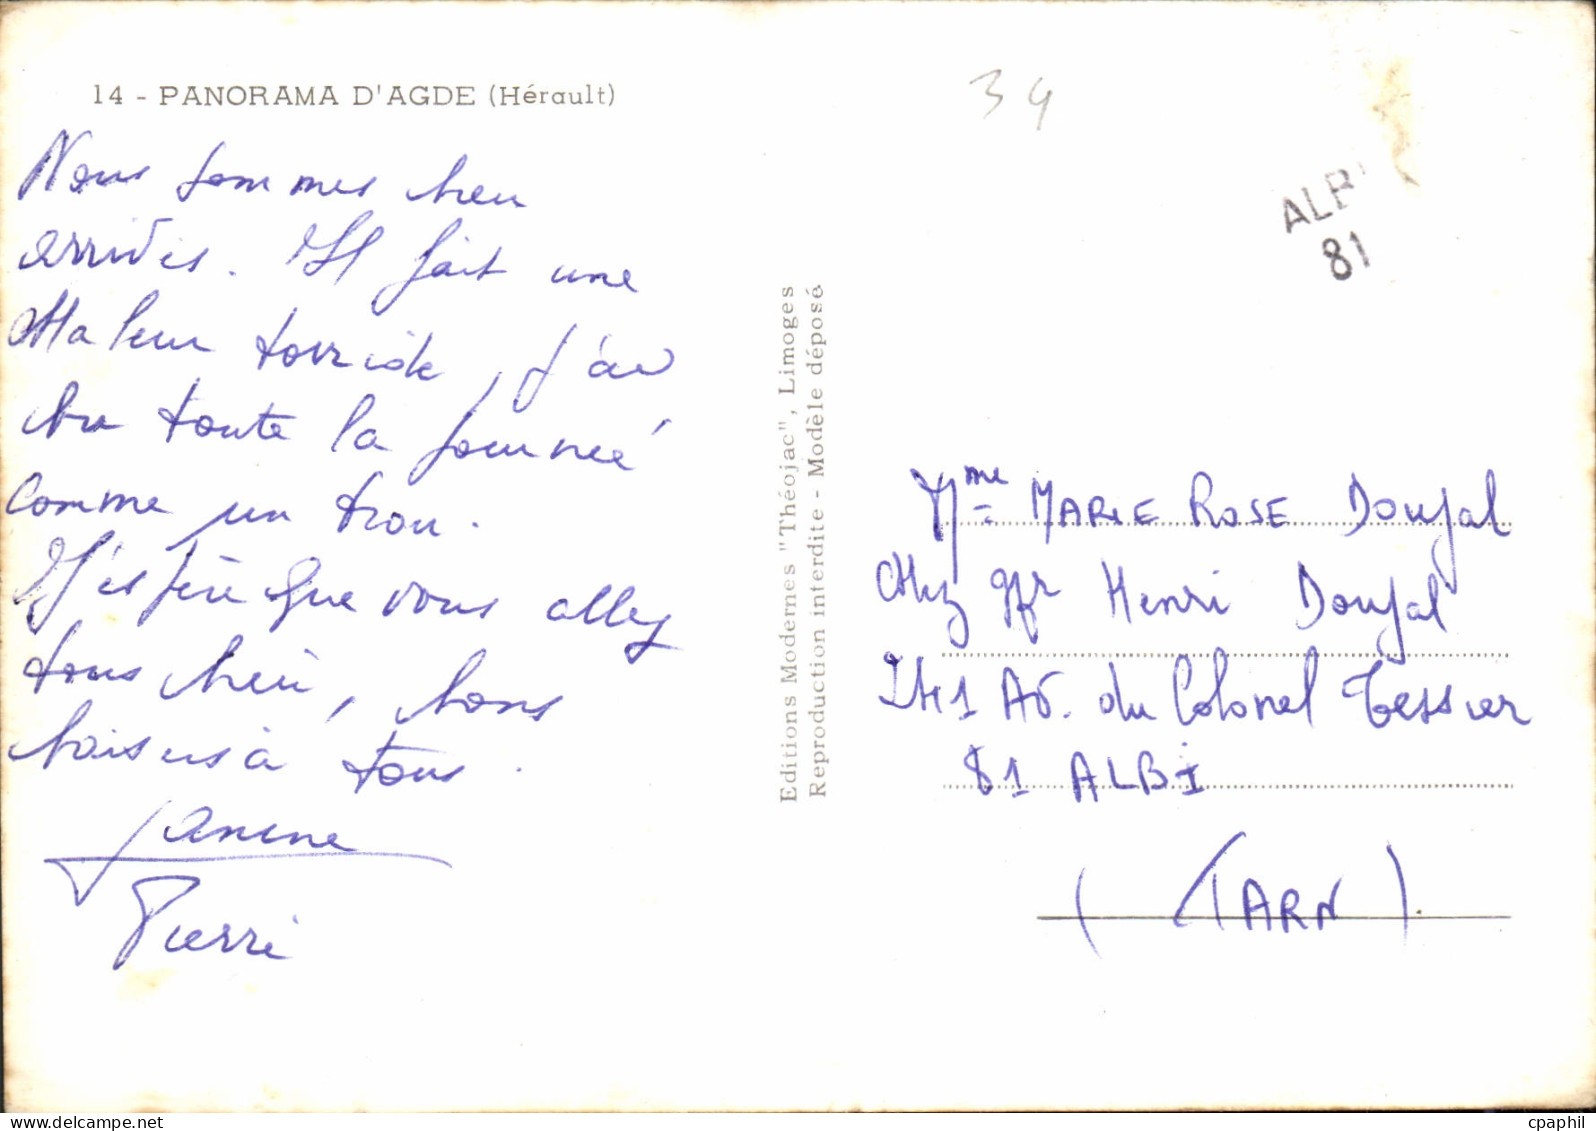 14 - PANORAMA D'AGDE (Hérault)
Nous sommes bien
arrivés. Il fait une
chaleur torride, j'ai
bu toute la journée
comme un trou.
J'espère que vous allez
tous bien, bons
baisers à tous.
Janine
Pierre
Editions Modernes "Théojac", Limoges
Reproduction interdite - Modèle déposé
34
ALBI
81
Mme MARIE ROSE Doujal
Chez Mr Henri Doujal
Av. du Colonel Teyssier
81 ALBI
(TARN).
cpaphil